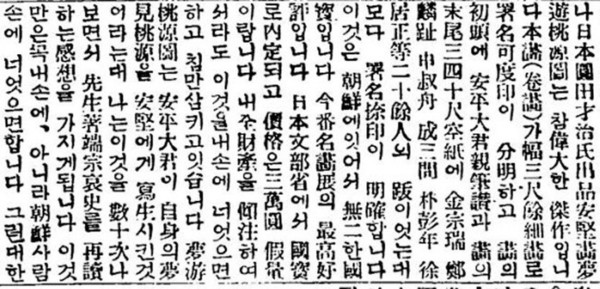 나日本園田才治氏出品安堅畵夢
遊桃源圖는참偉大한傑作입니
다本畵(卷畵)가幅三尺餘細畵로
署名可度印이 分明하고 畵의
初頭에 安平大君親筆讚과 畵의
末尾三四十尺空紙에 金宗瑞 鄭
麟趾 申叔舟 成三問 朴彭年 徐
居正等二十餘人의 跋이엇는대
모다 署名捺印이 明確합니다
이것은 朝鮮에잇어서 無二한國
寶입니다 今番名畵展의 最高好
評입니다 日本文部省에서 國寶
로內定되고 價格은三萬圓 假量
이랍니다 내全財産을 傾注하여
서라도 이것을내손에 너엇으면
하고 침만삼키고잇슴니다 夢游
桃源圖는 安平大君이 自身의夢
見桃源을 安堅에게 寫生시킨것
이라는대 나는이것을 數十次나
보면서 先生著端宗哀史를 再讀
하는感想을 가지게됩니다 이것
만은꼭내손에, 아니라朝鮮사람
손에 너엇으면합니다 그런대한